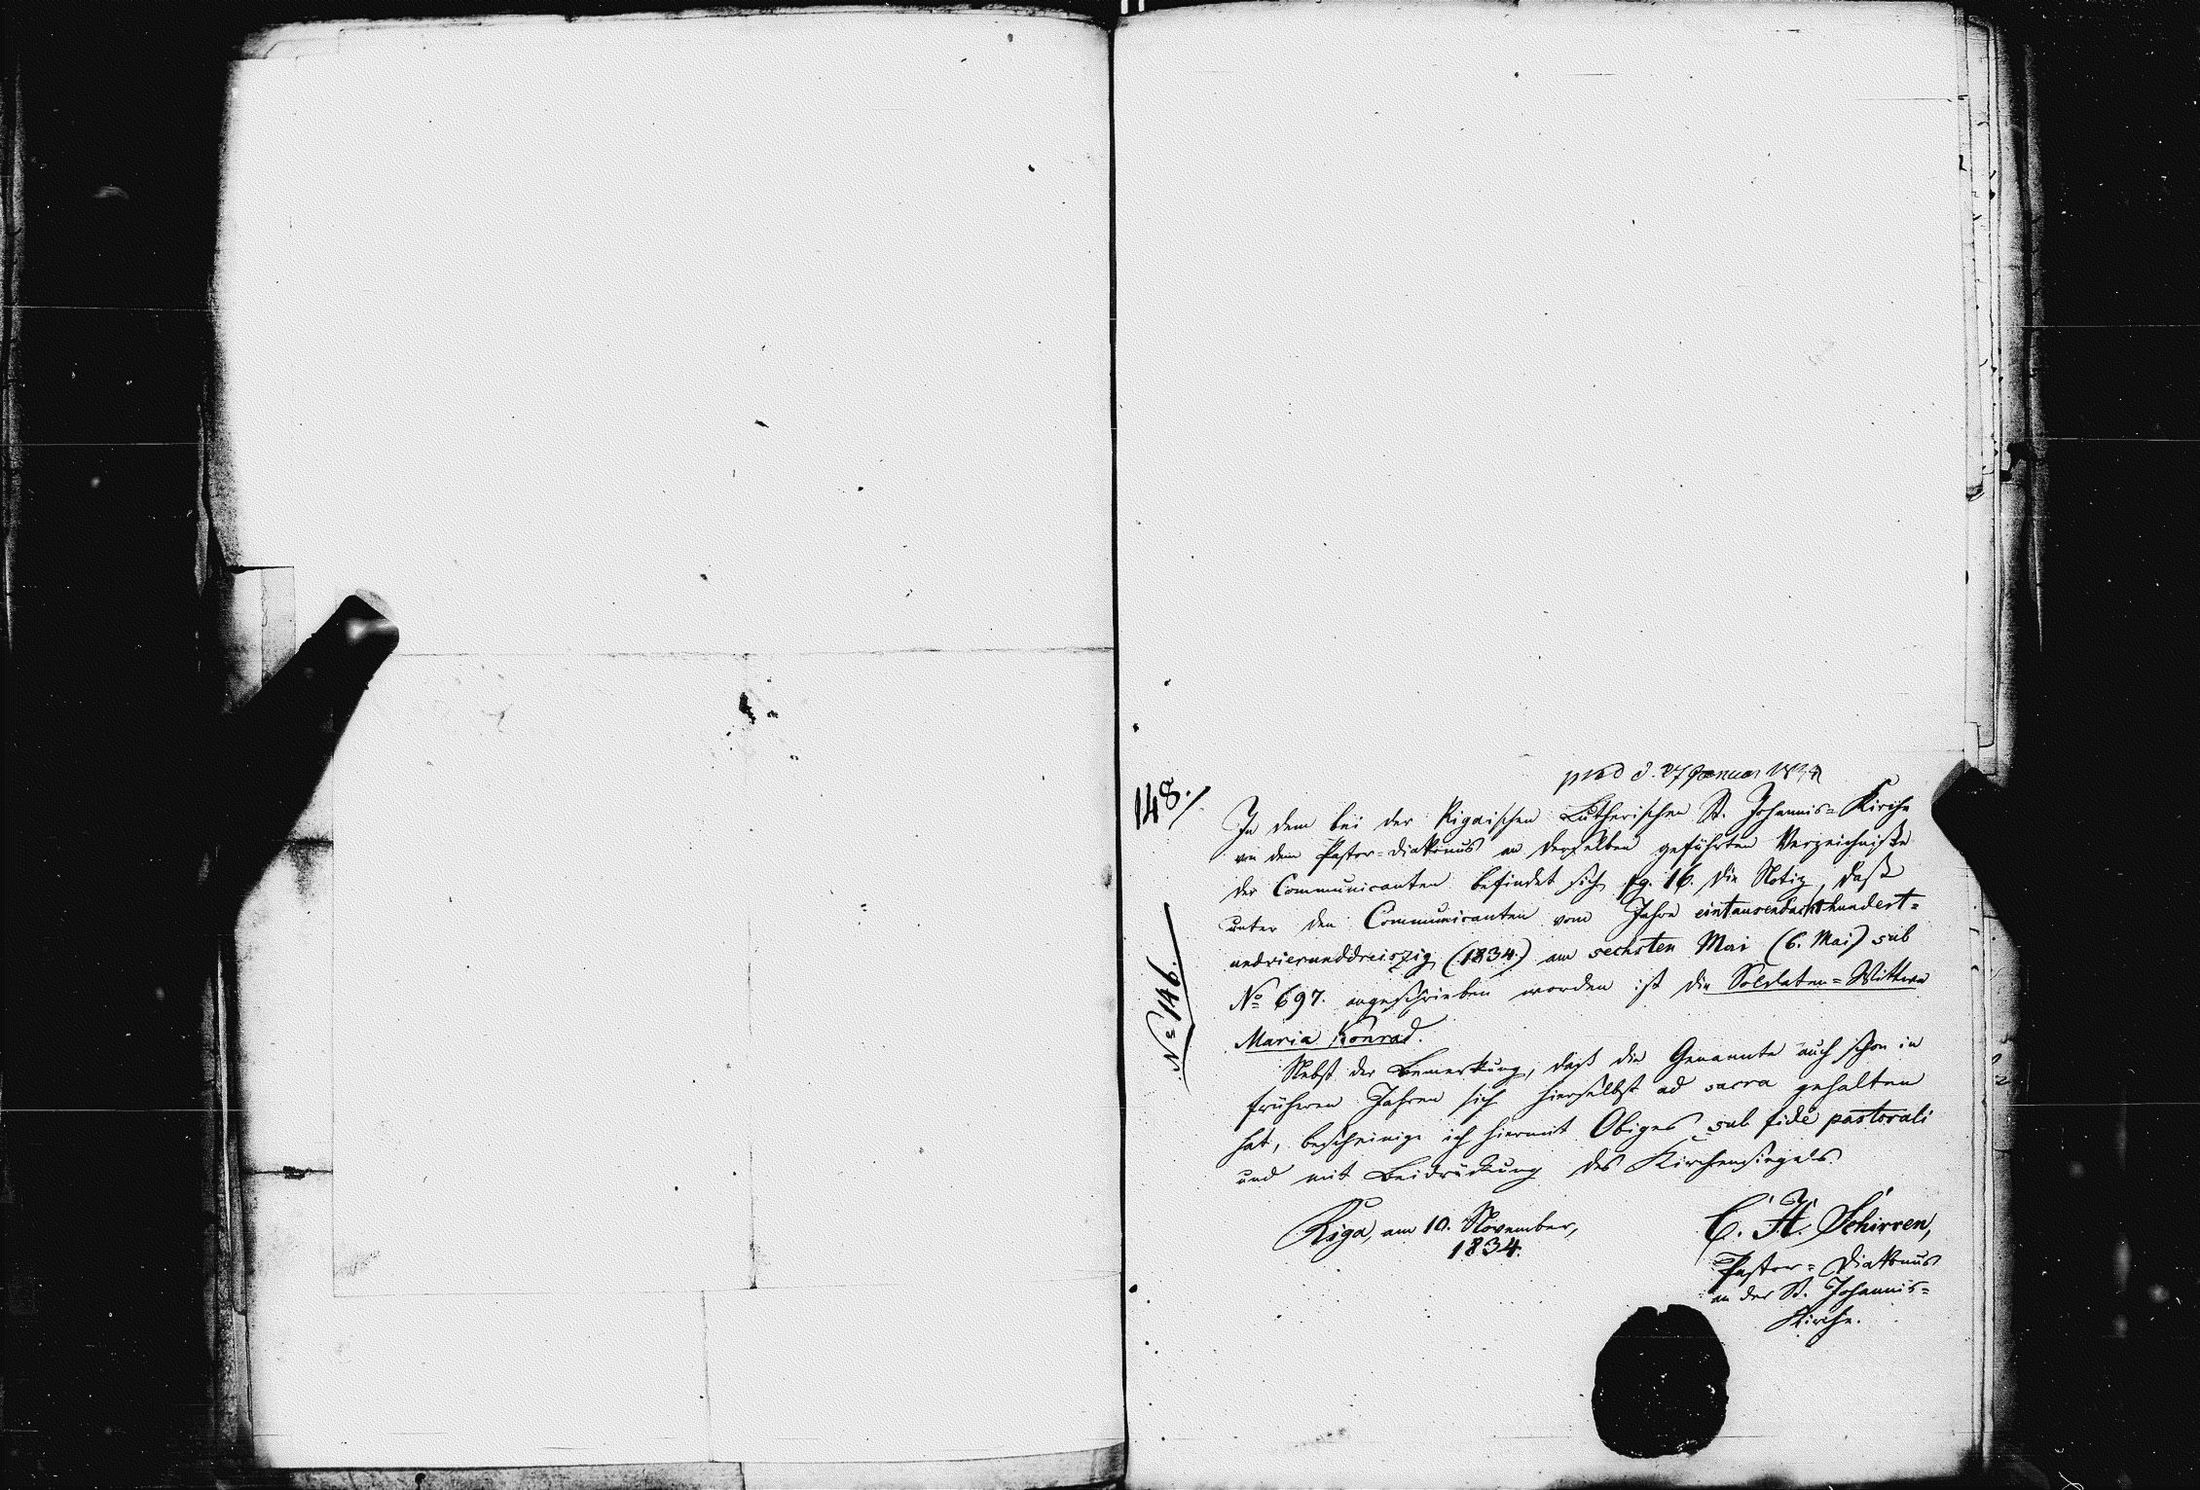 prod d. 27 Januar
148./
In dem bei der Rigaischen Lutherischen St. Johannis=Kirche
von dem Pastor=Diakonus an derselben geführten Verzeichniße
der Communicanten befindet sich pg. 16. die Notiz, daß
unter den Communicanten vom Jahre eintausendachthundert=
undvierunddreiszig (1834.) am sechsten Mai (6. Mai) sub
No 697. angeschrieben worden ist die Soldaten=Wittwe
Maria Konrad.
No 146.
Nebst der Bemerkung, daß die Genannte auch schon in
früheren Jahren sich hierselbst ad sacra gehalten
hat, bescheinige ich hiermit Obiges sub fide pastorali
und mit Beidrückung des Kirchensiegels.
Riga, am 10. November,
1834.
C. H. Schirren,
Pastor=Diakonus
an der St. Johannis=
Kirche.